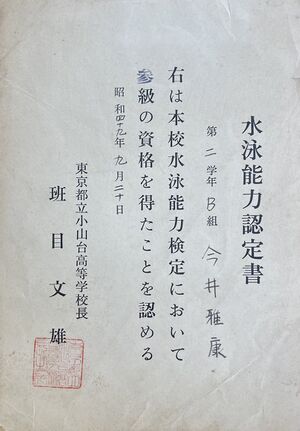 水泳能力認定書
第二学年B組 今井雅康
右は本校水泳能力検定において
参級の資格を得たことを認める
昭和四十九年九月二十日
東京都立小山台高等学校長
班目文雄